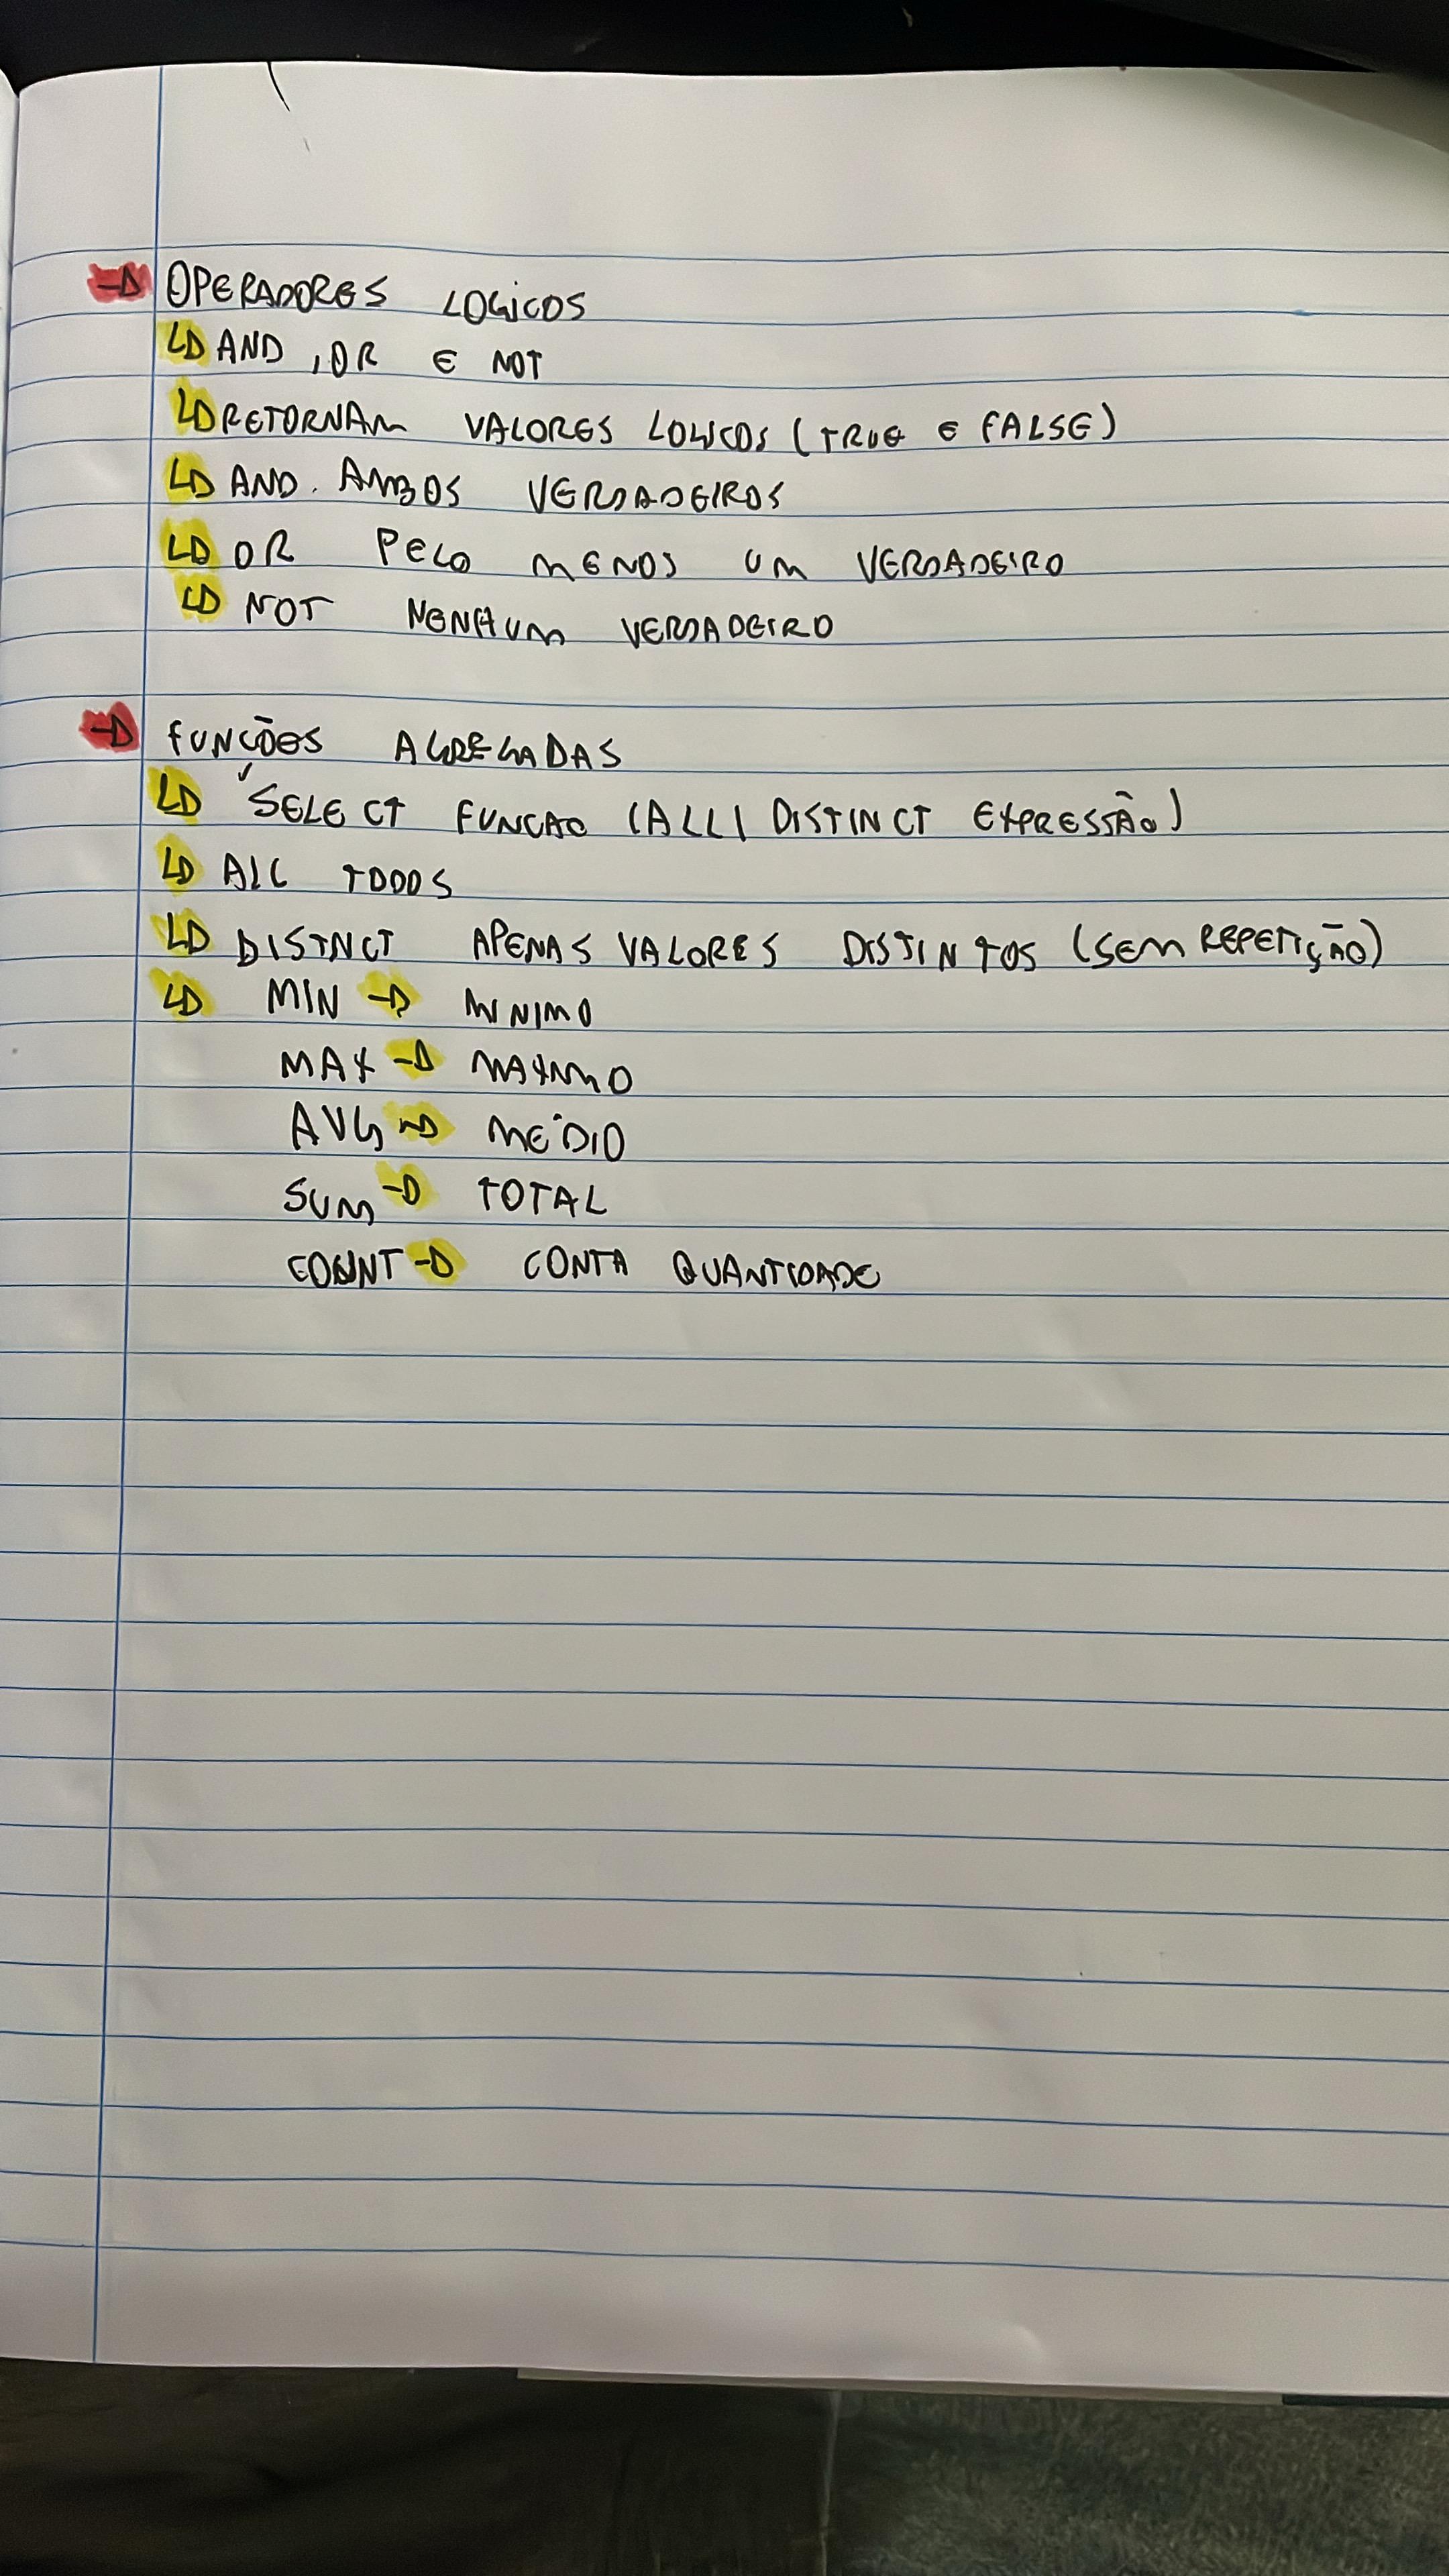 → OPERADORES LOGICOS
↳ AND , OR E NOT
↳ RETORNAM VALORES LOGICOS (TRUE E FALSE)
↳ AND. AMBOS VERDADEIROS
↳ OR PELO MENOS UM VERDADEIRO
↳ NOT NENHUM VERDADEIRO
→ FUNÇÕES AGREGADAS
↳ SELECT FUNCAO (ALL | DISTINCT EXPRESSÃO)
↳ ALL TODOS
↳ DISTNCT APENAS VALORES DISTINTOS (SEM REPETIÇÃO)
↳ MIN → MINIMO
MAX → MAXIMO
AVG → MÉDIO
SUM → TOTAL
COUNT → CONTA QUANTIDADE